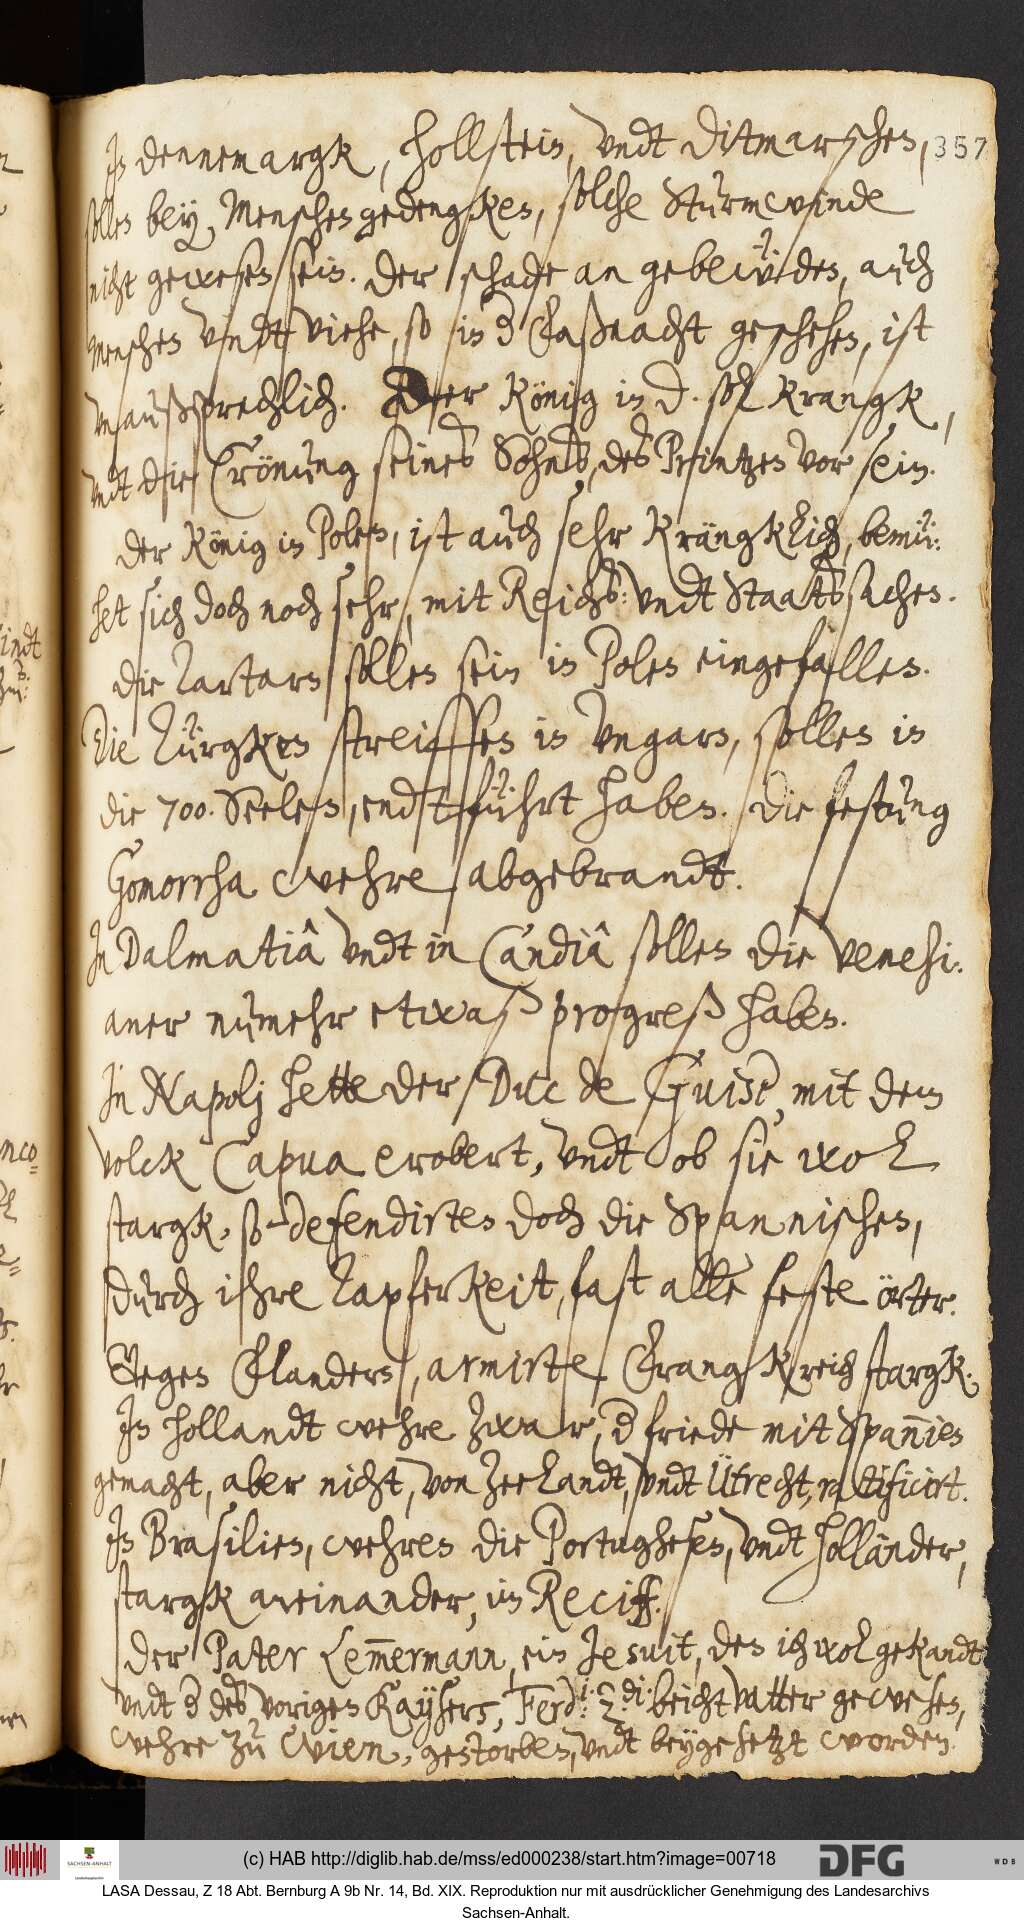 In dennemargk, Hollstein, vndt Ditmarschen, 357
sollen bey Menschen gedengken, solche Sturmwinde
nicht gewesen sein. Der schade an gebeüden, auch
Menschen vndt Viehe, so in d Faßnacht geschehen, ist
vnaußsprechlich. Der König in D. sol krangk,
vndt die Crönung seines Sohns, des Printzen vor sein.
Der König in Polen, ist auch sehr krängklich, bemü:
het sich doch noch sehr, mit Reichs: vndt Staatssachen.
die Tartarn sollen sein in Polen eingefallen.
Die Türgken streiffen in Vngarn, sollen in
die 700. Seelen, endtführt haben. Die festung
Gomorrha wehre abgebrandt.
In Dalmatiâ vndt in Candiâ sollen die Venezi:
aner numehr etwaß progreß haben.
In Napolj hette der Duc de Guise, mit dem
volck Capua erobert, vndt ob sie wol
stargk, so defendirten doch die Spannischen,
durch ihre Tapferkeit, fast alle feste örter.
Gegen Flandern, armirte Frangkreich stargk.
In Hollandt wehre zwar, d friede mit Spannien
gemacht, aber nicht, von Zeelandt, vndt Ütrecht, ratificirt.
In Brasilien, wehren die Portughesen, vndt Holländer,
stargk aneinander, im Reciff.
Der Pater Lem̄ermann, ein Jesuit, den ich wol gekandt
vndt d des vorigen Kaysers, Ferdi: 2.di. beichtvatter gewesen,
wehre zu Wien, gestorben, vndt beygesetzt worden.
(c) HAB http://diglib.hab.de/mss/ed000238/start.htm?image=00718
SACHSEN-ANHALT
DFG
WDB
LASA Dessau, Z 18 Abt. Bernburg A 9b Nr. 14, Bd. XIX. Reproduktion nur mit ausdrücklicher Genehmigung des Landesarchivs
Sachsen-Anhalt.